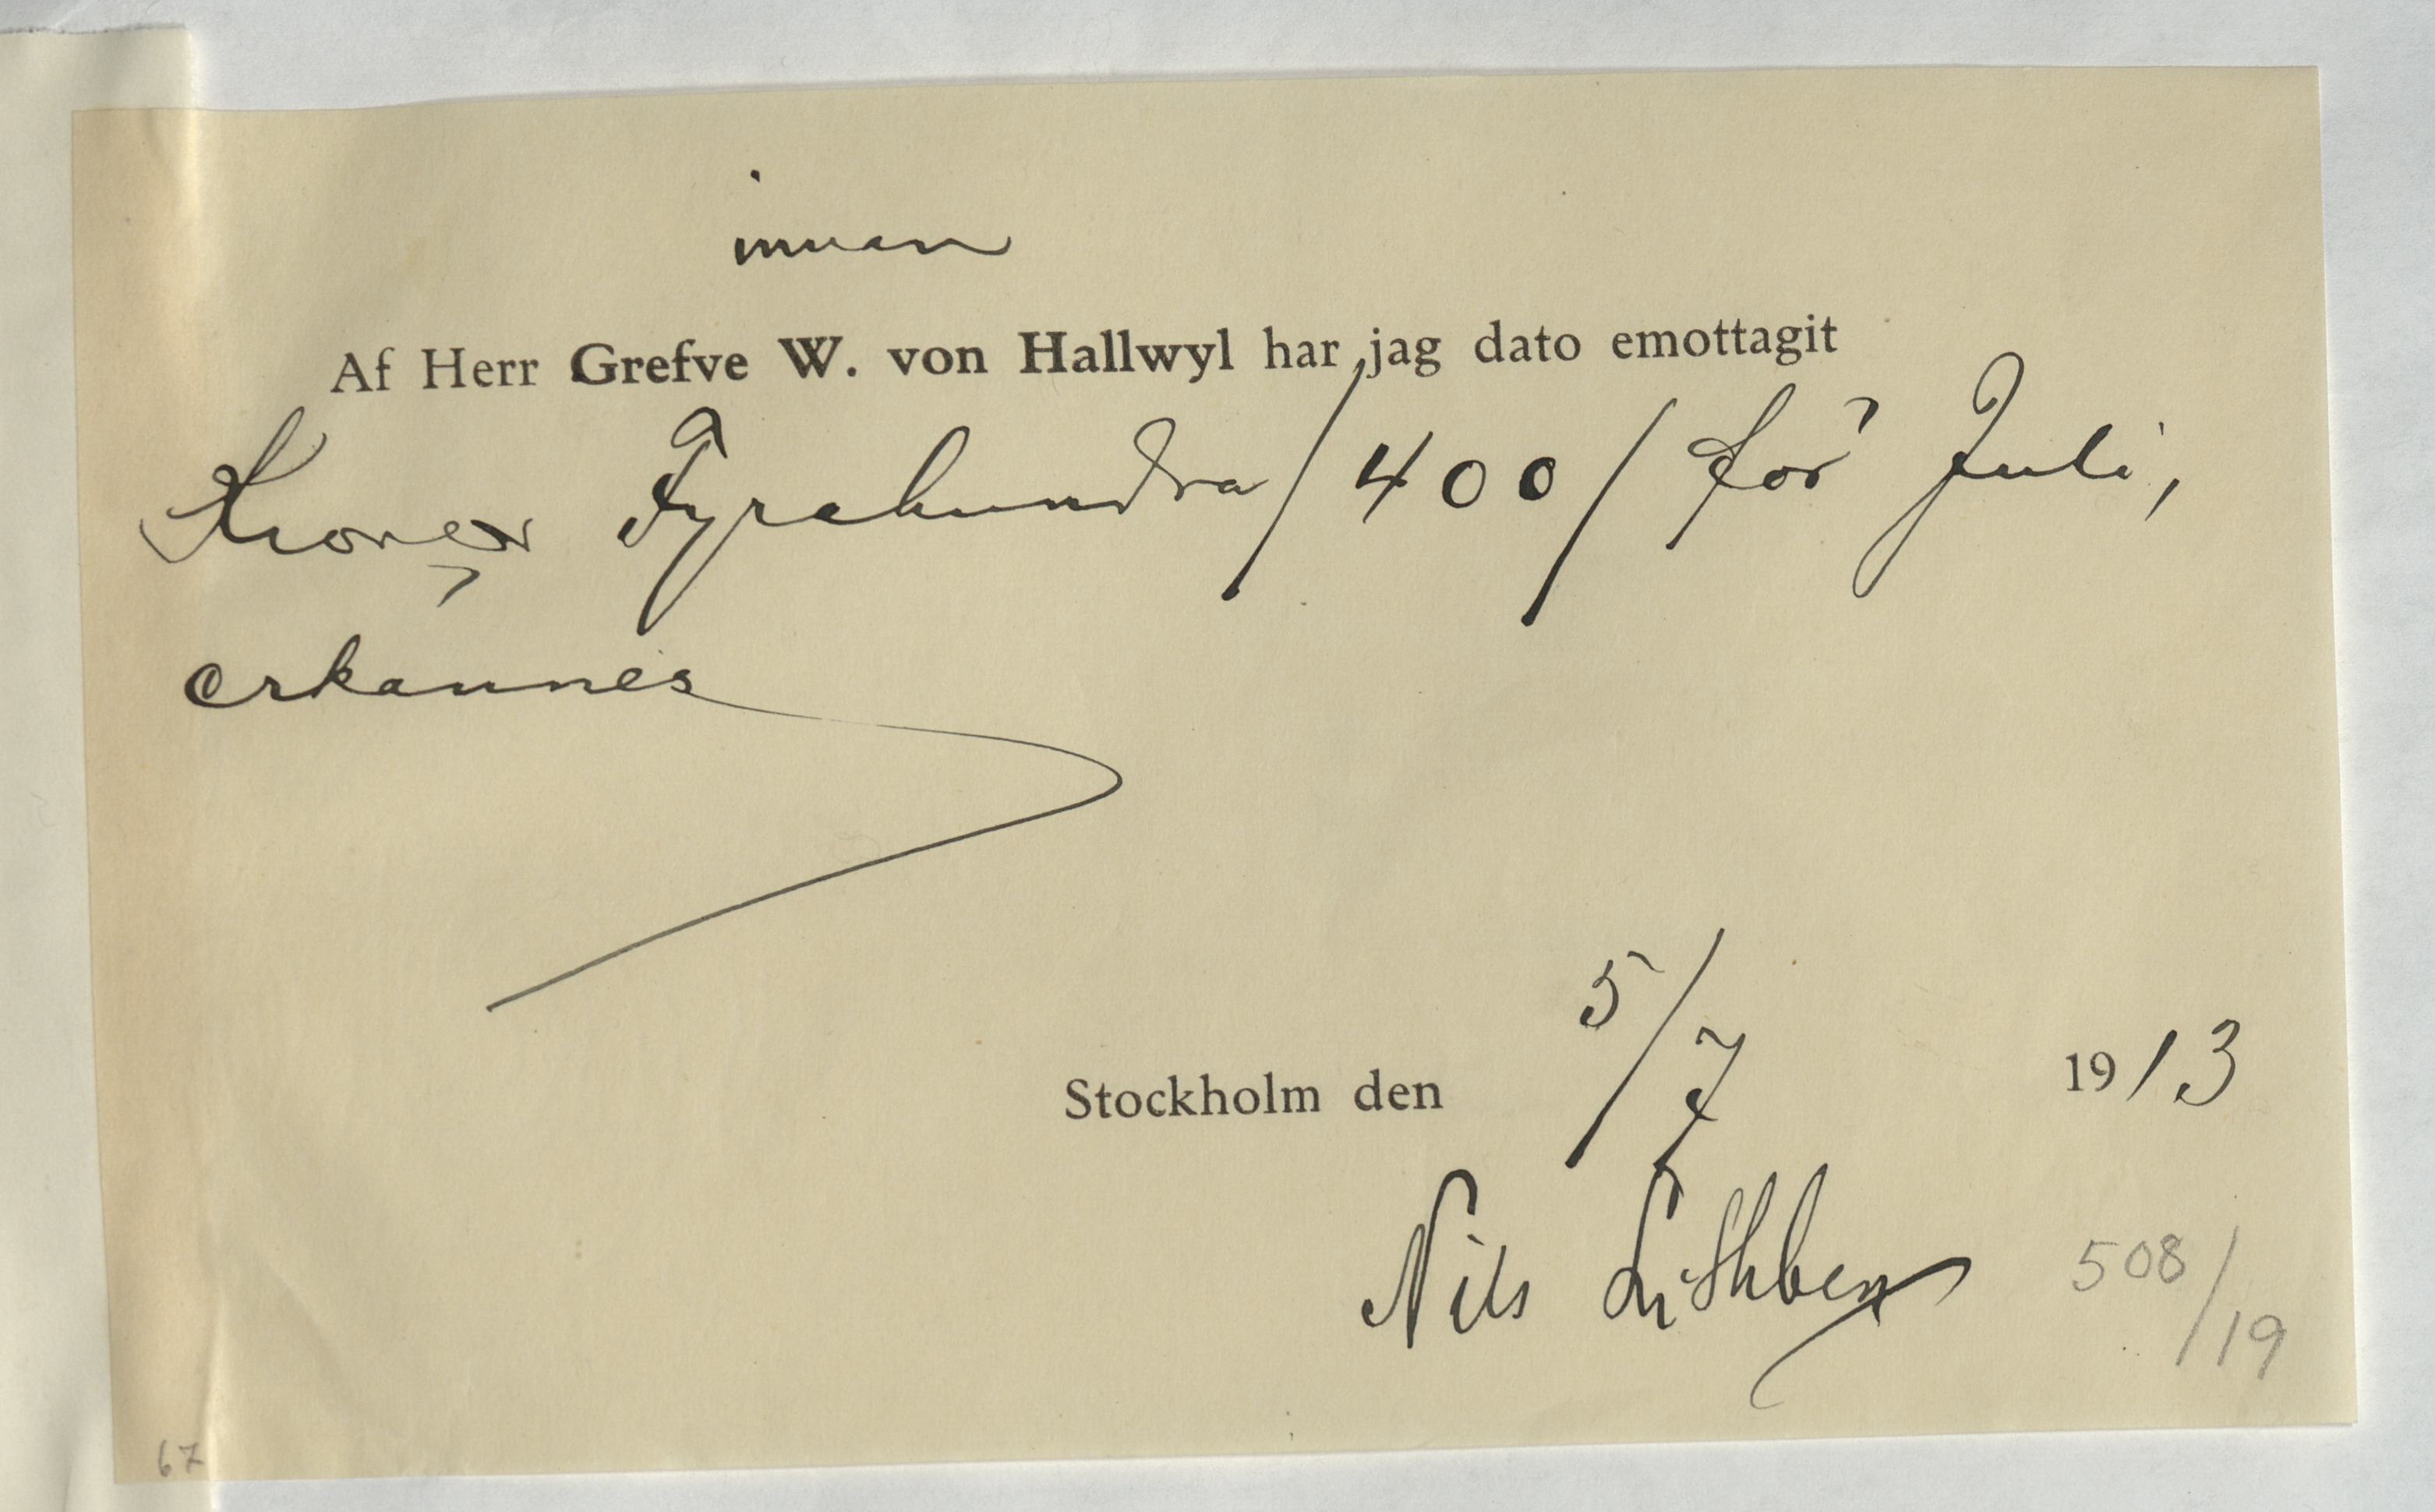 Af Herr Grefve W. von Hallwyl har jag dato emottagit
Kronor Fyrahundra / 400 / för Juli,
erkännes
5/7
Stockholm den 1913
Nils
508/19
67